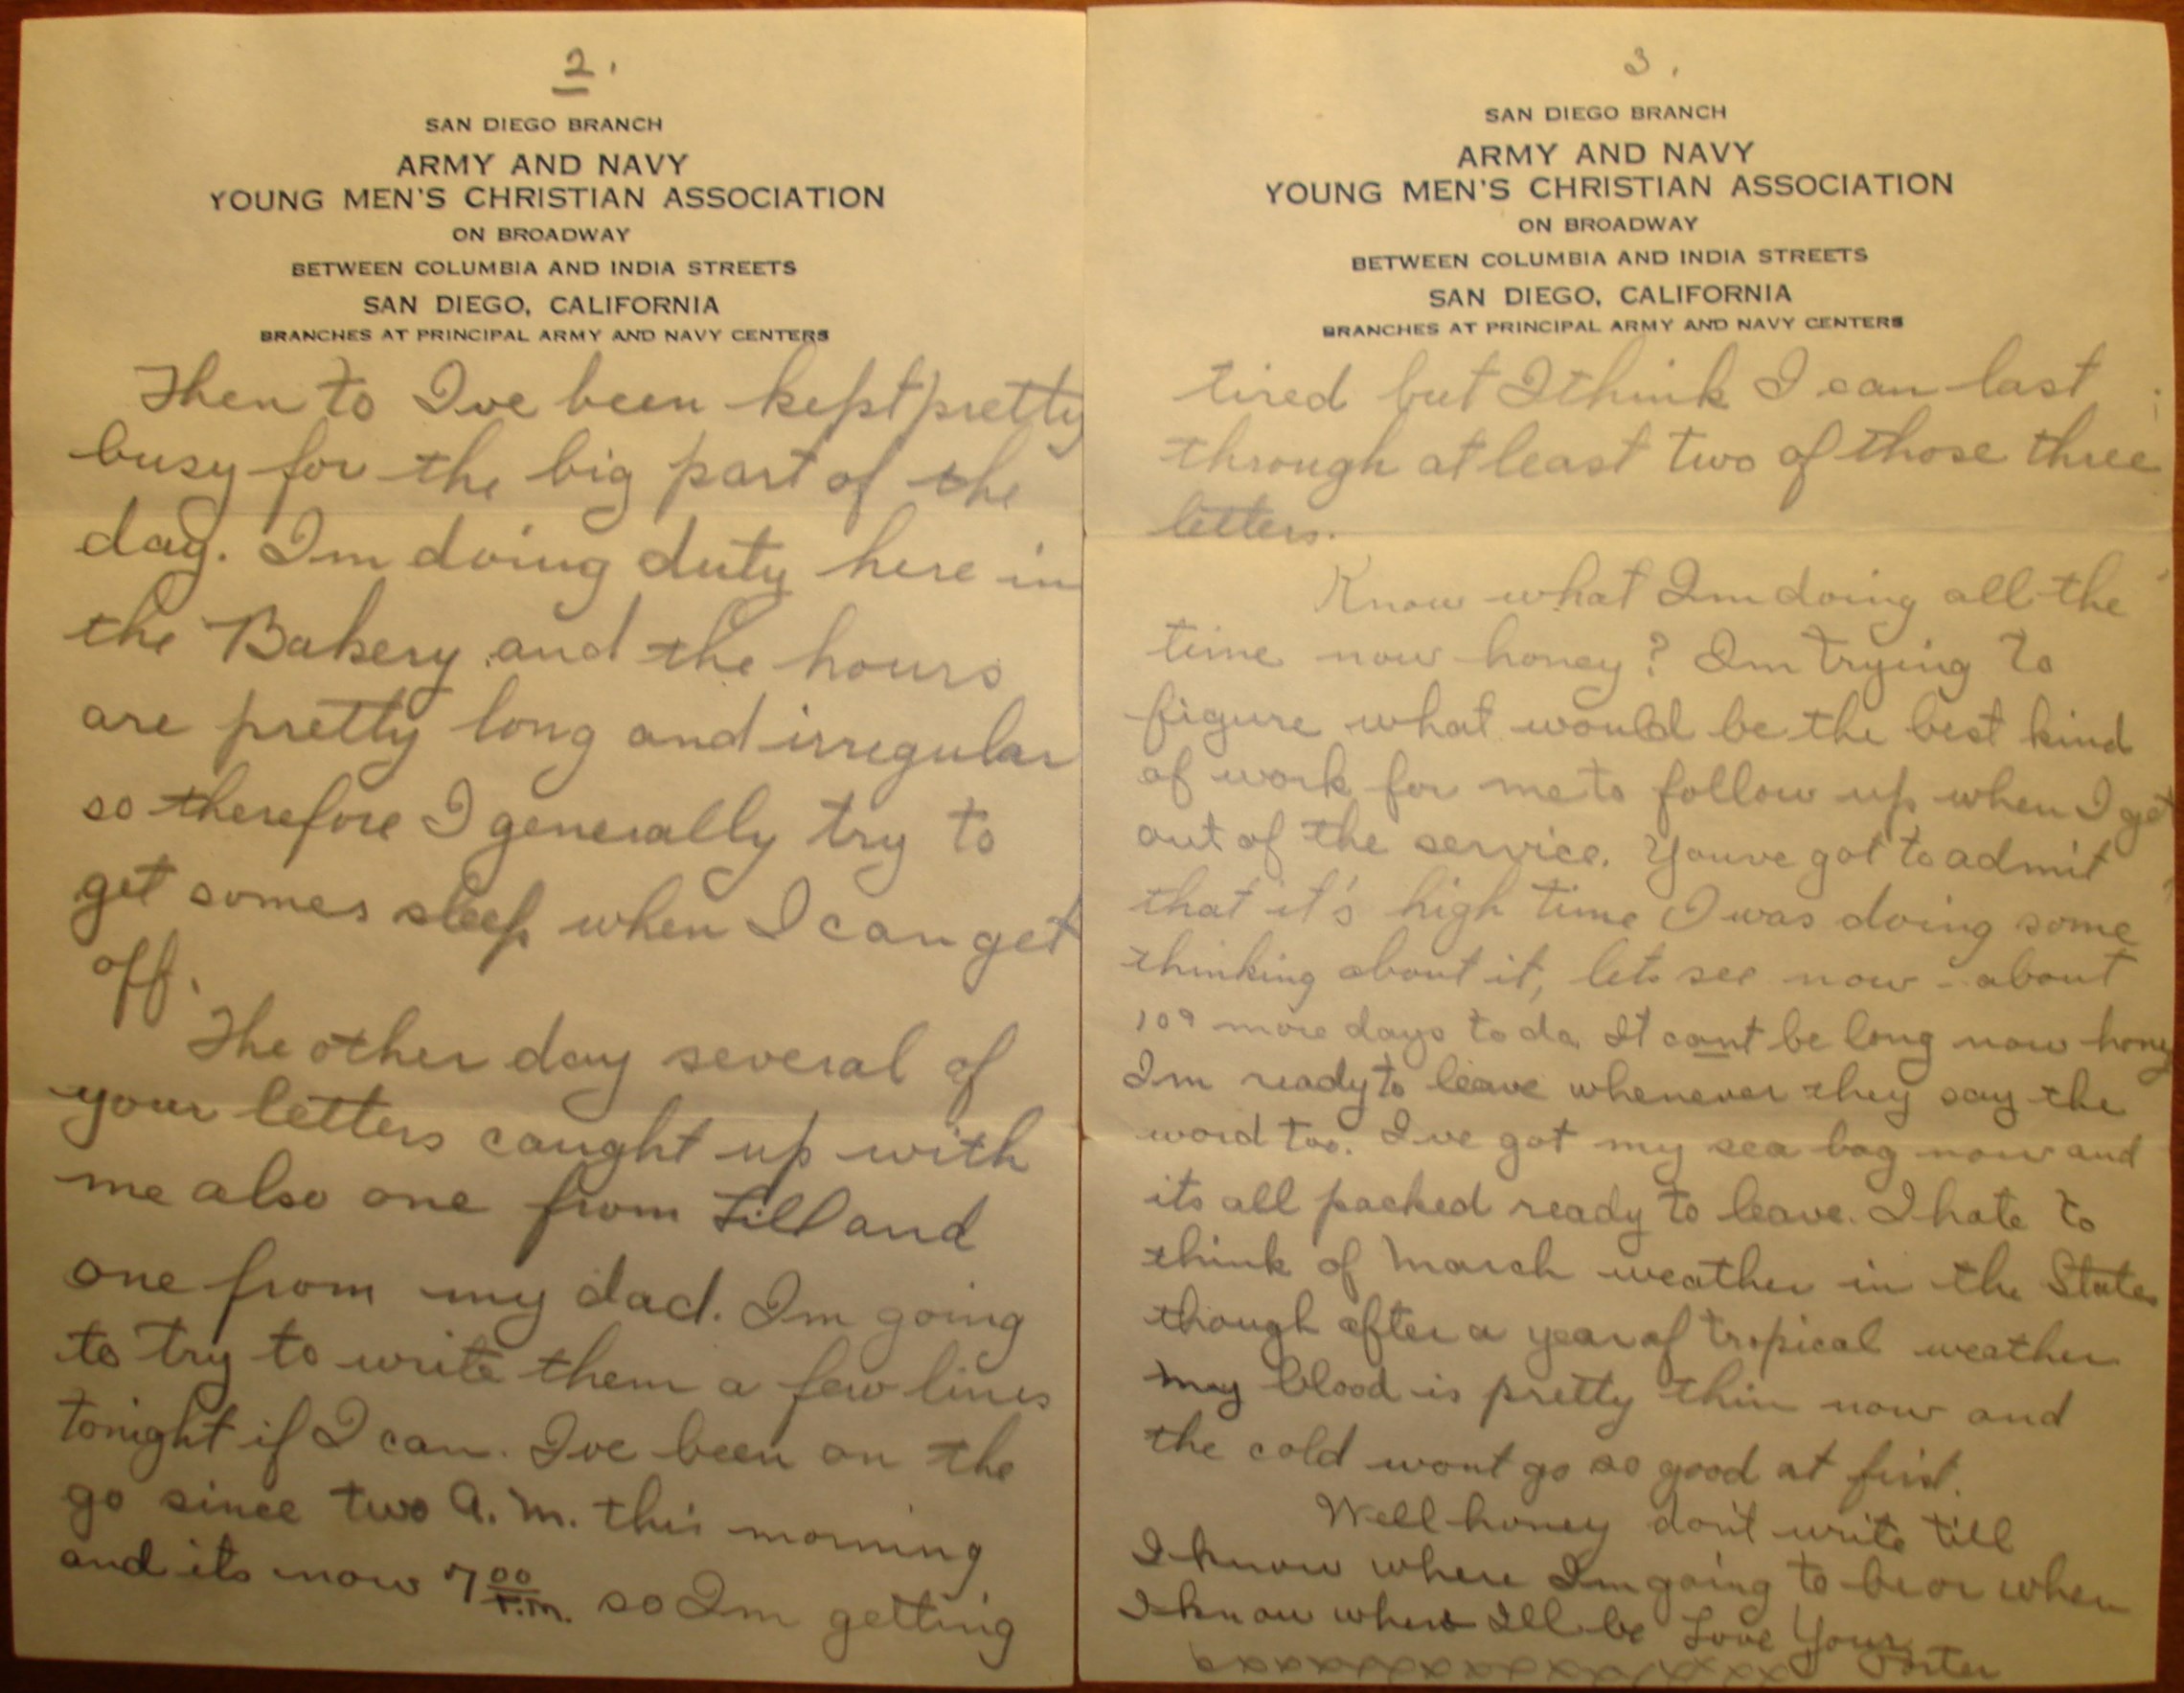 2.
SAN DIEGO BRANCH
ARMY AND NAVY
YOUNG MEN'S CHRISTIAN ASSOCIATION
ON BROADWAY
BETWEEN COLUMBIA AND INDIA STREETS
SAN DIEGO, CALIFORNIA
BRANCHES AT PRINCIPAL ARMY AND NAVY CENTERS
Then to I've been kept pretty
busy for the big part of the
day. I'm doing duty here in
the Bakery and the hours
are pretty long and irregular
so therefore I generally try to
get somes sleep when I can get
off.
The other day several of
your letters caught up with
me also one from Lill and
one from my dad. Im going
to try to write them a few lines
tonight if I can. I've been on the
go since two A.M. this morning
and its now 7 00 P.M. so Im getting
3.
SAN DIEGO BRANCH
ARMY AND NAVY
YOUNG MEN'S CHRISTIAN ASSOCIATION
ON BROADWAY
BETWEEN COLUMBIA AND INDIA STREETS
SAN DIEGO, CALIFORNIA
BRANCHES AT PRINCIPAL ARMY AND NAVY CENTERS
tired but I think I can last
through at least two of those three
letters.
Know what Im doing all the
time now honey? Im trying to
figure what would be the best kind
of work for me to follow up when I get
out of the service. Youve got to admit
that it's high time I was doing some
thinking about it, lets see now - about
109 more days to do. It cant be long now honey
Im ready to leave whenever they say the
word too. I've got my sea bag now and
its all packed ready to leave. I hate to
think of March weather in the States
though after a year of tropical weather
my blood is pretty thin now and
the cold wont go so good at first.
Well honey don't write till
I know where Im going to be or when
I know where Ill be Love Your
xxxxxxxxxxxxxxxx